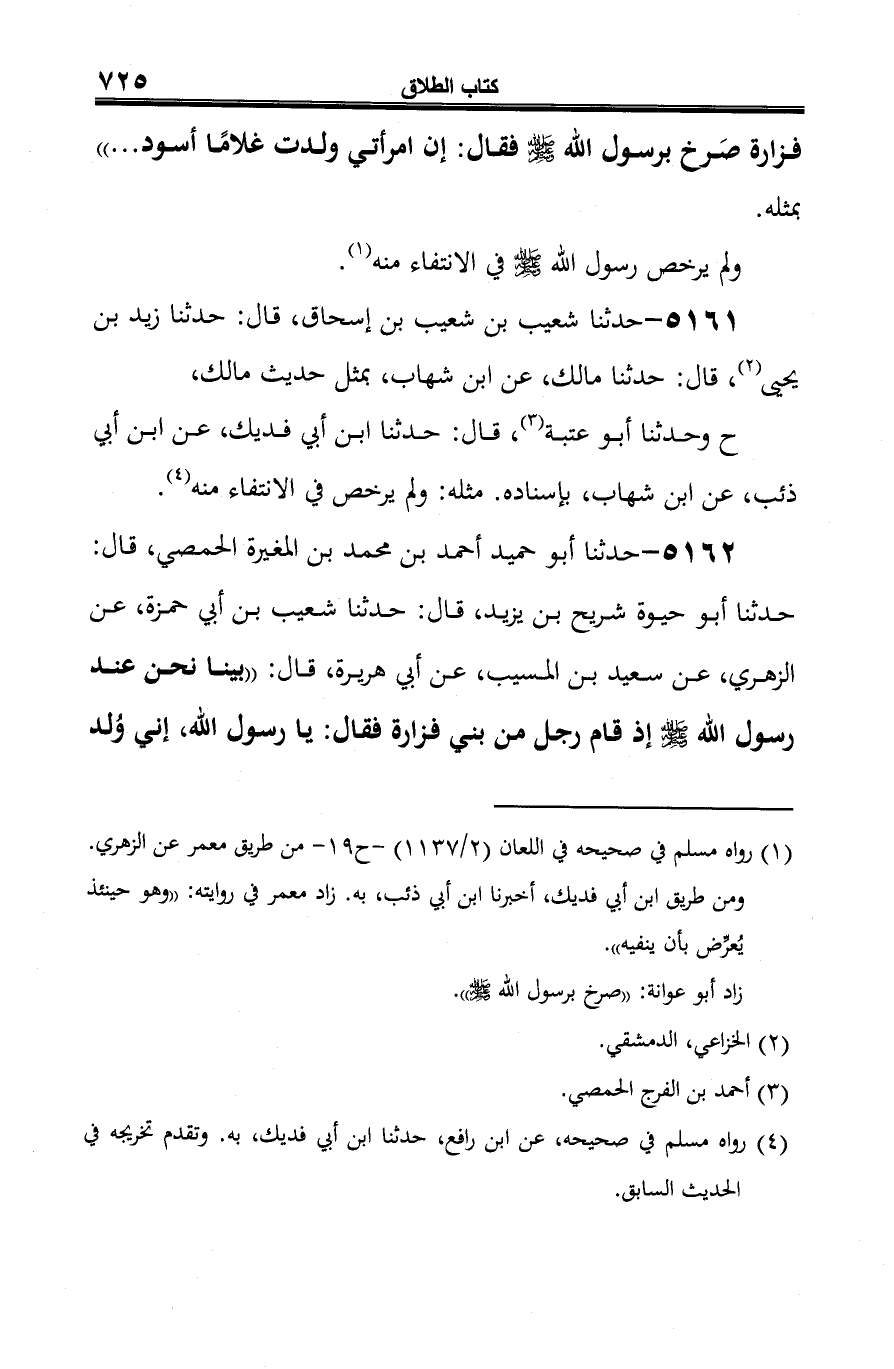 كتاب الطلاق ٧٢٥
فزارة صَرخ برسول الله ﷺ فقال: إن امرأتي ولدت غلامًا أسود...))
بمثله.
ولم يرخص رسول الله ﷺ في الانتفاء منه(١).
٥١٦١-حدثنا شعيب بن شعيب بن إسحاق، قال: حدثنا زيد بن
يحيى(٢)، قال: حدثنا مالك، عن ابن شهاب، بمثل حديث مالك،
ح وحدثنا أبو عتبة(٣)، قال: حدثنا ابن أبي فديك، عن ابن أبي
ذئب، عن ابن شهاب، بإسناده. مثله: ولم يرخص في الانتفاء منه(٤).
٥١٦٢-حدثنا أبو حميد أحمد بن محمد بن المغيرة الحمصي، قال:
حدثنا أبو حيوة شريح بن يزيد، قال: حدثنا شعيب بن أبي حمزة، عن
الزهري، عن سعيد بن المسيب، عن أبي هريرة، قال: ((بينا نحن عند
رسول الله ﷺ إذ قام رجل من بني فزارة فقال: يا رسول الله، إني وُلد
(١) رواه مسلم في صحيحه في اللعان (١١٣٧/٢) -ح١٩- من طريق معمر عن الزهري.
ومن طريق ابن أبي فديك، أخبرنا ابن أبي ذئب، به. زاد معمر في روايته: ((وهو حينئذ
يُعرِّض بأن ينفيه)).
زاد أبو عوانة: ((صرخ برسول الله ﷺ)).
(٢) الخزاعي، الدمشقي.
(٣) أحمد بن الفرج الحمصي.
(٤) رواه مسلم في صحيحه، عن ابن رافع، حدثنا ابن أبي فديك، به. وتقدم تخريجه في
الحديث السابق.